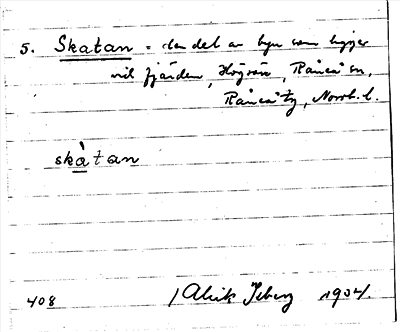 5. Skatan = den del av byn som ligger
vid fjärden, Högsön, Råneå sn,
Råneå tg, Norrb. l.
skàtan
408 / Alrik Isberg 1934.